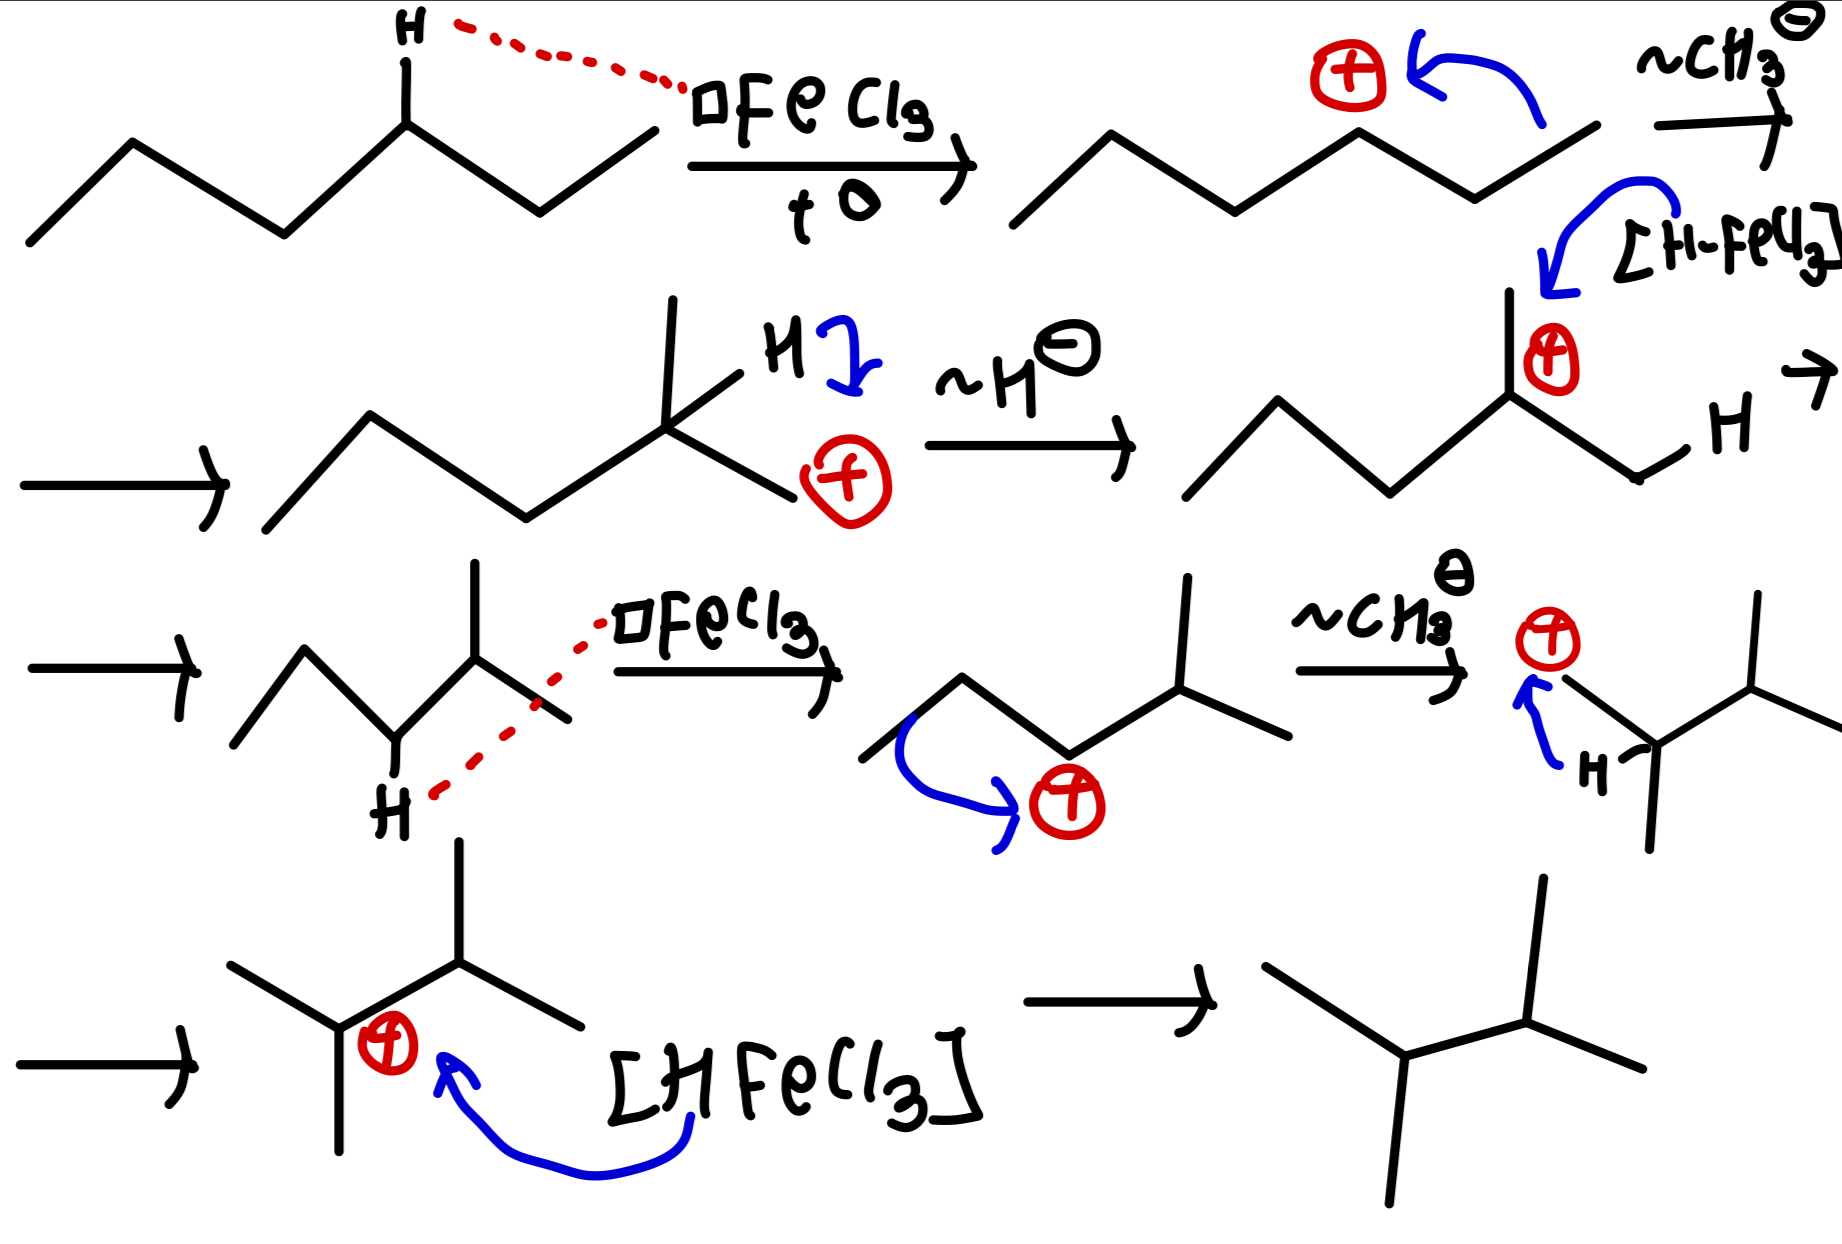 H
□FeCl₃
t°
⊕
~CH₃⊖
[H-FeCl₃]
H
⊕
~H⊖
⊕
H
□FeCl₃
H
⊕
~CH₃⊖
⊕
H
⊕
[HFeCl₃]